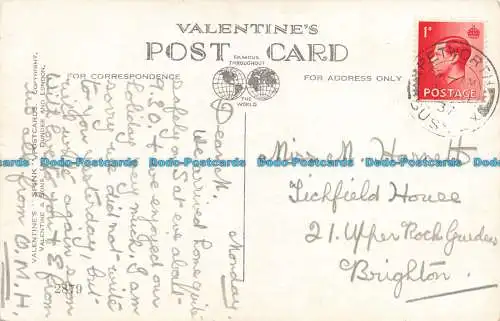 VALENTINE'S
POST CARD
FAMOUS
THROUGHOUT
THE WORLD
FOR CORRESPONDENCE
FOR ADDRESS ONLY
1D
POSTAGE
PETWORTH
SUSSEX
VALENTINE'S "SPINK" POSTCARDS. COPYRIGHT.
VALENTINE & SONS, LTD., DUNDEE AND LONDON.
2879
Monday.
Dear M.
We arrived home quite
safely on Sat eve about
9.30. & we enjoyed our
holiday very much. I am
sorry I did not write
to you yesterday, but
will write again soon
love to you & from
us all from O.M.H.
Miss M. Howitt
Tichfield House
21. Upper Rock Gardens
Brighton.
Dodo-Postcards Dodo-Postcards Dodo-Postcards Dodo-Postcards